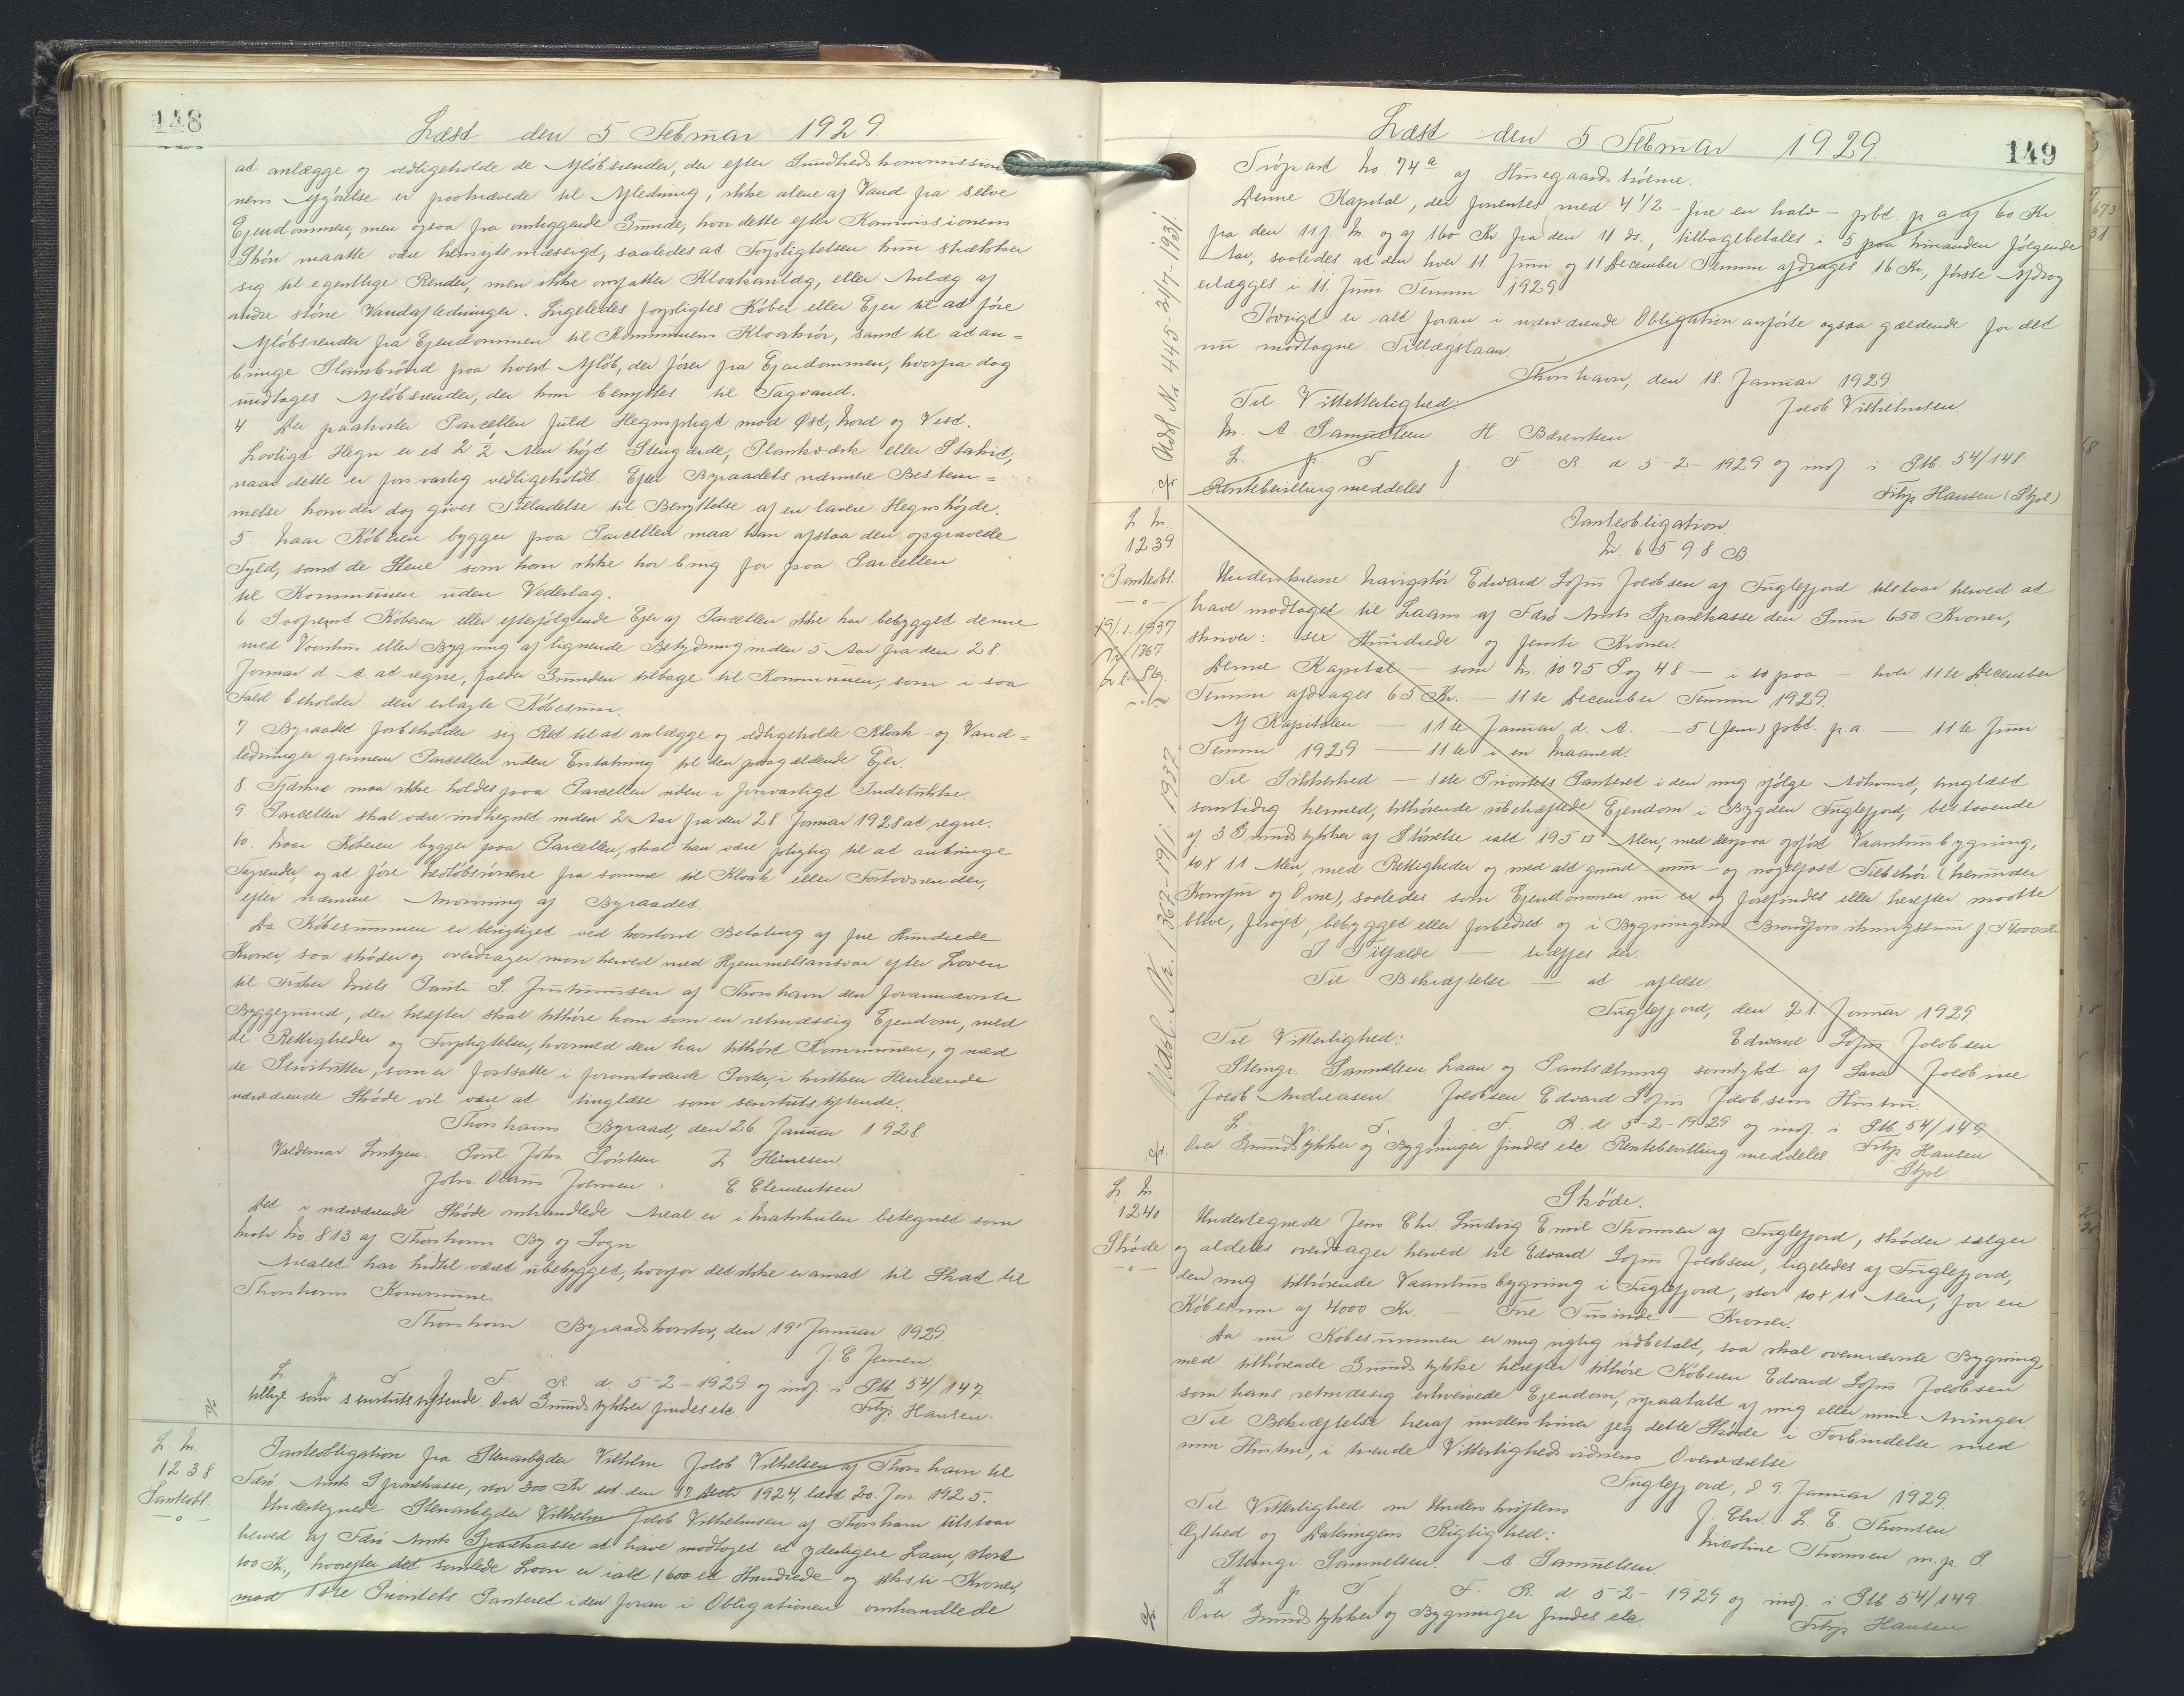 148
Læst den 5. Februar 1929.
at anlægge og vedligeholde de Afløbsrender, der efter Sundhedskommissio-
nens Afgørelse er paakrævede til Afledning, ikke alene af Vand fra selve
Ejendommen, men ogsaa fra omliggende Grunde, hvor dette efter Kommissionens
Skøn maatte være hensigtsmæssigt, saaledes at Forpligtelsen kun strækker
sig til egentlige Render, men ikke omfatter Kloakanlæg, eller Anlæg af
andre større Vandafledninger. Ligeledes forpligtes Køber eller Ejer til at føre
Afløbsrender fra Ejendommen til Kommunens Kloakrør, samt til at an=
bringe Slambrønd paa hvert Afløb, der fører fra Ejendommen, hvorfra dog
undtages Afløbsrender, der kun benyttes til Tagvand.
4 Der paahviler Parcellen fuld Hegnspligt mod Øst, Nord og Vest.
Lovligt Hegn er et 2 1/2 Alen højt Stengærde, Plankeværk eller Stakit,
naar dette er forsvarlig vedligeholdt. Efter Byraadets nærmere Bestem=
melse kan der dog gives Tilladelse til Benyttelse af en lavere Hegnshøjde.
5 Naar Køberen bygger paa Parcellen maa han afstaa den opgravede
Fyld, samt de Stene som han ikke har brug for paa Parcellen
til Kommunen uden Vederlag.
6 Saafremt Køberen eller efterfølgende Ejer af Parcellen ikke har bebygget denne
med Vaanhus eller Bygning af lignende Betydning inden 5 Aar fra den 28.
Januar d. A. at regne, falder Grunden tilbage til Kommunen, som i saa
Fald beholder den erlagte Købesum.
7 Byraadet forbeholder sig Ret til at anlægge og vedligeholde Kloak- og Vand=
ledninger gennem Parcellen uden Erstatning til den paagældende Ejer.
8. Fjærkræ maa ikke holdes paa Parcellen uden i forsvarligt Indelukke.
9. Parcellen skal være indhegnet inden 2 Aar fra den 28 Januar 1928 at regne.
10. Naar Køberen bygger paa Parcellen, skal han være pligtig til at anbringe
Tagrender, og at føre Nedløbsrørene fra samme til Kloak eller Fortovsrender,
efter nærmere Anvisning af Byraadet.
Da Købesummen er berigtiget ved kontant Betaling af fire Hundrede
Kroner, saa skøder og overdrager man herved med Hjemmelsansvar efter Loven
til Fisker Niels Pauli S. Justinussen af Thorshavn den forannævnte
Byggegrund, der herefter skal tilhøre ham som en retmæssig Ejendom, med
de Rettigheder og Forpligtelser, hvormed den har tilhørt Kommunen, og med
de Servitutter, som er fastsatte i foranstaaende Poster, i hvilken Henseende
nærværende Skøde vil være at tinglæse som servitutstiftende.
Thorshavns Byraad, den 26. Januar 1928.
Valdemar Lützen. Poul Johs Poulsen. Z. Heinesen.
Johs. Olaus Joensen. E. Clementsen.
Det i nærværende Skøde omhandlede Areal er i Matrikulen betegnet som
Matr. No. 813 af Thorshavns By og Sogn
Arealet har hidtil været ubebygget, hvorfor det ikke er ansat til Skat til
Thorshavns Kommune.
Thorshavn Byraadskontor, den 19' Januar 1929.
J. C. Jensen
L. p. T. f. F. R. d. 5-2-1929 og indf. i Ptb. 54/147
tillige som servitutstiftende. Over Grundstykker findes etc. Filip Hansen.
L. N.
1238
Panteobl.
Panteobligation fra Stenarbejder Vilhelm Jakob Vilhelmsen af Thorshavn til
Færø Amts Sparekasse, stor 300 Kr. dat. den 17 Decbr. 1924, læst 20. Jan. 1925.
Undertegnede Stenarbejder Vilhelm Jakob Vilhelmsen af Thorshavn tilstaar
herved af Færø Amts Sparekasse at have modtaget et yderligere Laan, stort
100 Kr., hvorefter det samlede Laan er ialt 160 et Hundrede og seksti Kroner,
mod 1ste Prioritets Panteret i den foran i Obligationen omhandlede
149
Læst den 5 Februar 1929.
Tröpart No. 74a af Husegaards trøerne.
Denne Kapital, der forrentes med 4 1/2 - fire en halv - pCt. p. a. af 60 Kr
fra den 11 f. M. og af 160 Kr. fra den 11 ds., tilbagebetales i 5 paa hinanden følgende
Aar, saaledes at der hver 11. Juni og 11 December Termin afdrages 16 Kr., første Afdrag
erlægges i 11. Juni Termin 1929
Iøvrigt er alt foran i nærværende Obligation anførte ogsaa gældende for det
nu modtagne Tillægslaan.
Thorshavn, den 18. Januar 1929.
Til Vitterlighed: Jakob Vilhelmsen.
M. A. Samuelsen H. Bærentsen
L. p. T. f. F. R. d. 5-2-1929 og indf. i Ptb. 54/148
Rentebevilling meddeles Filip Hansen (Stpl)
Udsl. Nr. 445 21/7-1931.
L. N.
1239
Panteobl.
19/1. 1937
Nr 1367
Panteobligation.
Nr. 6598 B
Underskrevne Navigatør Edward Sofus Jakobsen af Fuglefjord tilstaar herved at
have modtaget til Laans af Færø Amts Sparekasse den Sum 650 Kroner,
skriver: sex Hundrede og femti Kroner.
Denne Kapital — som Nr. 1075 Pag 48 — i 10 paa — hver 11te December
Termin afdrages 65 Kr. — 11te December Termin 1929.
Af Kapitalen — 11te Januar d. A. — 5 (fem) pCt. p. a. — 11te Juni
Termin 1929 — 11te i en Maaned.
Til Sikkerhed — 1ste Prioritets Panteret i den mig ifølge Adkomst, tinglæst
samtidig hermed, tilhørende ubehæftede Ejendom i Bygden Fuglefjord, bestaaende
af 3 Grundstykker af Størrelse ialt 195 □ Alen, med derpaa opført Vaanhusbygning,
10 x 11 Alen, med Rettigheder og med alt grund- mur- og nagelfast Tilbehør (herunder
Komfur og Ovne), saaledes som Ejendommen nu er og forefindes eller herefter maatte
blive, forøget, bebygget eller forbedret og i Bygningens Brandforsikringssum
I Tilfælde — træffes der.
Til Bekræftelse — at aflæse.
Fuglefjord, den 21. Januar 1929
Til Vitterlighed: Edward Sofus Jakobsen
Stemgr. Samuelsen Laan og Pantsætning samtykt af Sara Jakobine
Jakob Andreasen Jakobsen Edvard Sofus Jakobsens Hustru
L. p. T. f. F. R. d. 5-2-1929 og indf. i Ptb. 54/149
Over Grundstykker og Bygninger findes etc. Rentebevilling meddeles. Filip Hansen
Stpl.
Udsl. Nr. 1367-19/1. 1937.
L. N.
1240
Skøde
Skøde.
Undertegnede Jens Chr. Ludvig Emil Thomsen af Fuglefjord, skøder sælger
og aldeles overdrager herved til Edvard Sofus Jakobsen, ligeledes af Fuglefjord,
den mig tilhørende Vaanhusbygning i Fuglefjord, stor 10 x 11 Alen, for en
Købesum af 4000 Kr. — Fire Tusinde — Kroner.
Da nu Købesummen er mig rigtig udbetalt, saa skal ovennævnte Bygning,
med tilhørende Grundstykke herefter tilhøre Køberen Edvard Sofus Jakobsen
som hans retmæssig erhvervede Ejendom, upaatalt af mig eller mine Arvinger.
Til Bekræftelse heraf underskriver jeg dette Skøde i Forbindelse med
min Hustru, i tvende Vitterlighedsvidners Overværelse
Fuglefjord, d 9. Januar 1929.
Til Vitterlighed om Underskriftens J. Chr. L. E. Thomsen.
Ægthed og Dateringens Rigtighed: Nicoline Thomsen m. p. P.
Stemgr. Samuelsen. A Samuelsen.
L. p. T. f. F. R. d. 5-2-1929 og indf. i Ptb. 54/149
Over Grundstykker og Bygninger findes etc. Filip Hansen